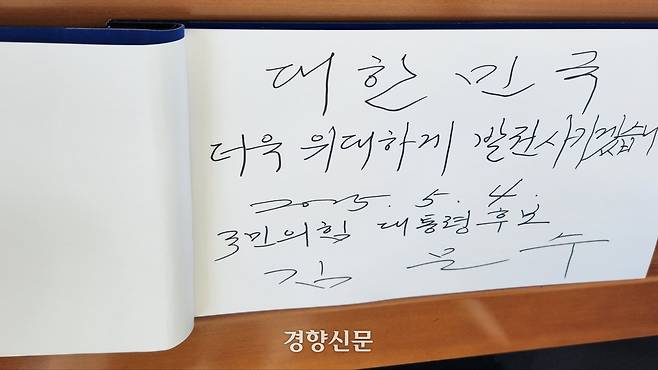 대한민국
더욱 위대하게 발전시키겠습니
2025. 5. 4.
국민의힘 대통령후보
김문수
경향신문